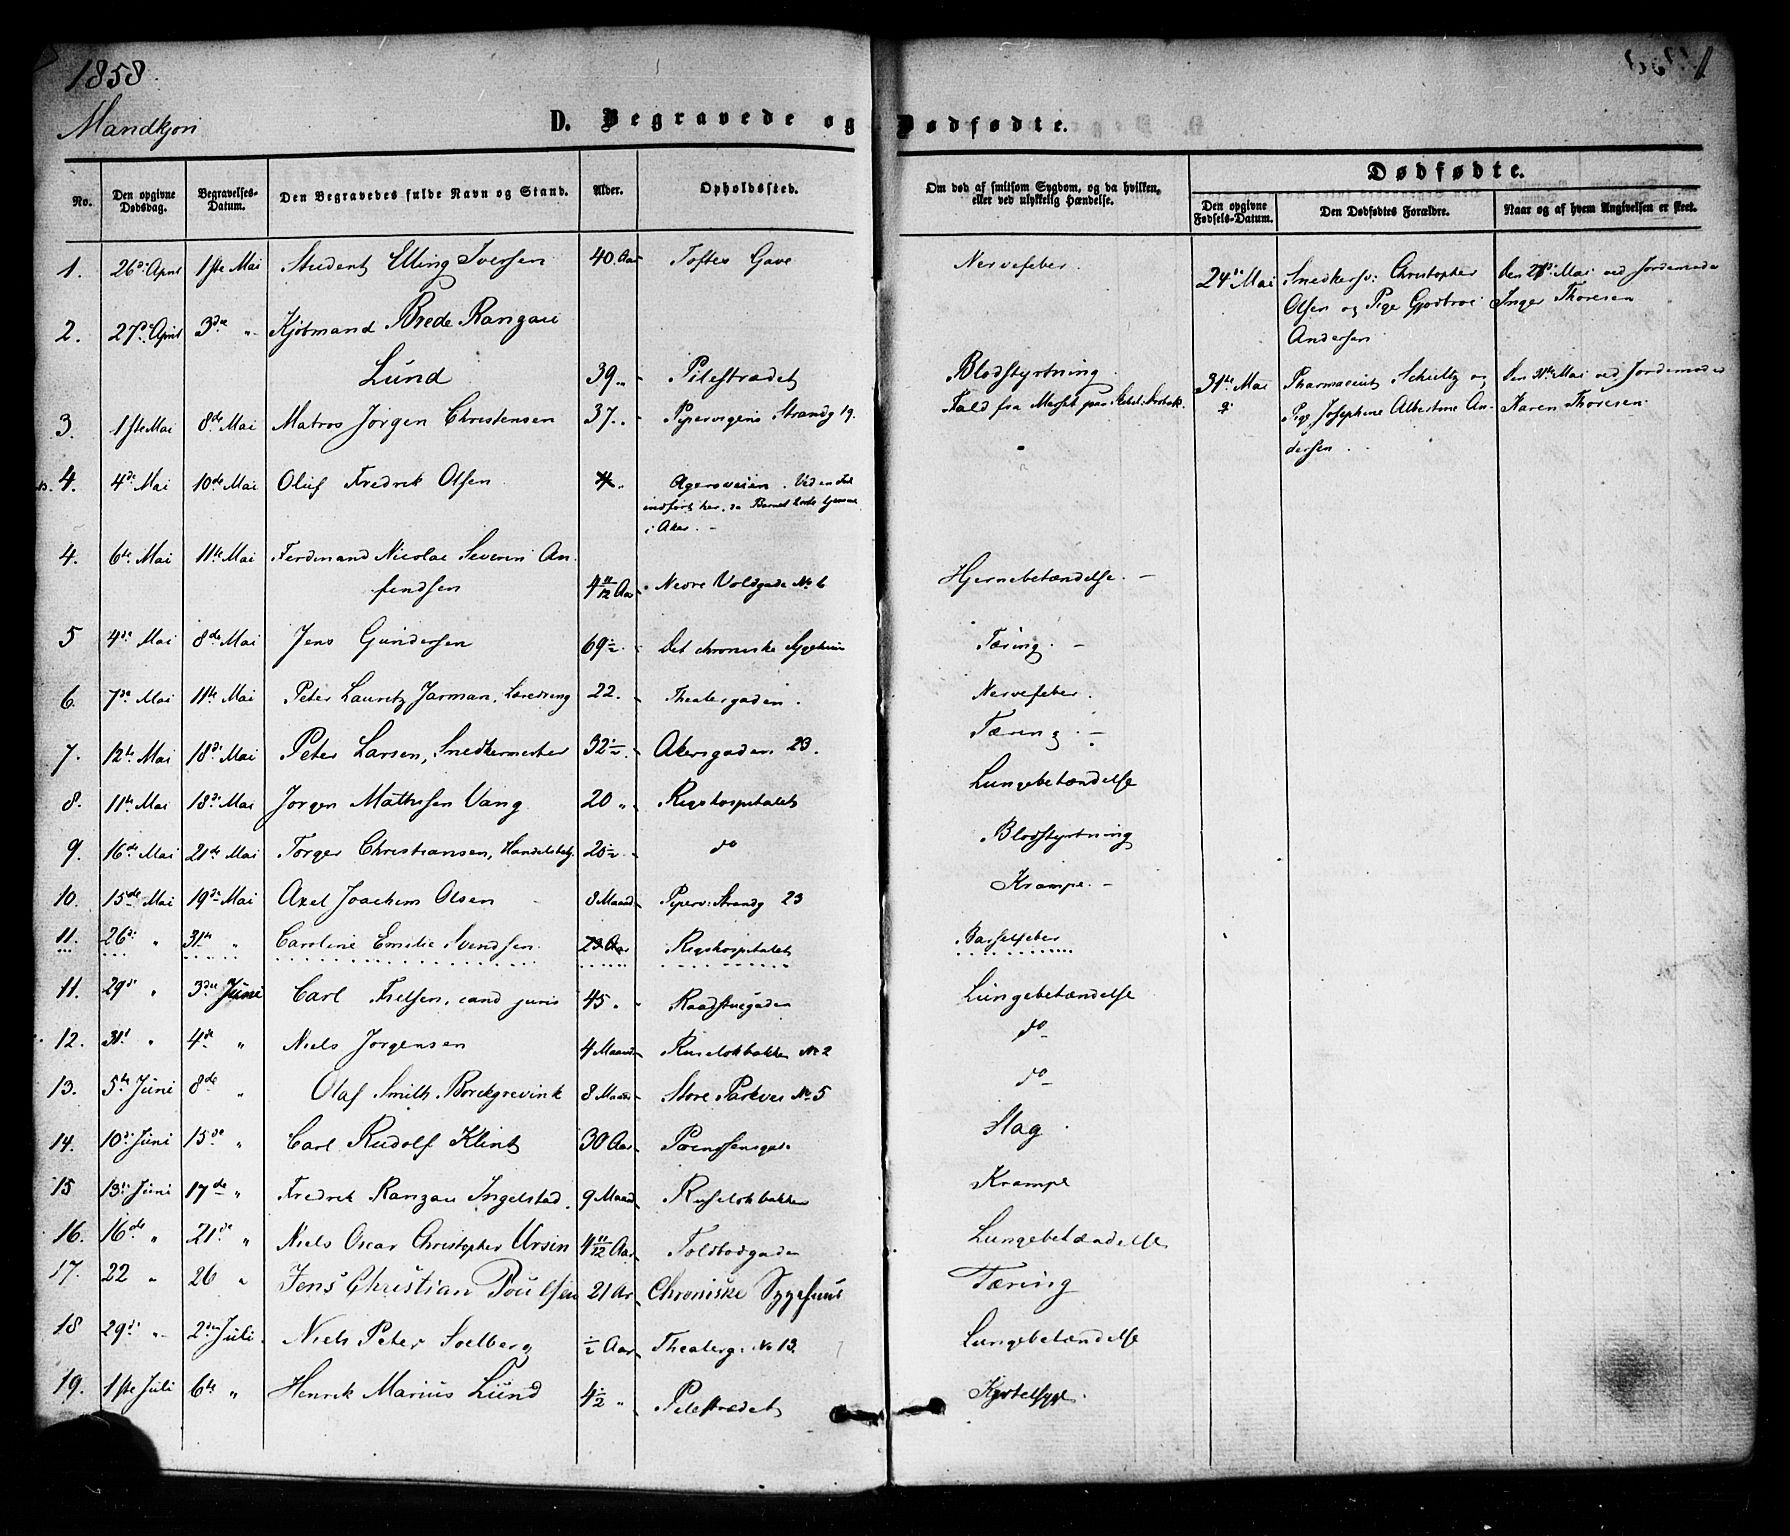 1858
Mandkjøn
D. Begravede og Dødfødte.
No. | Den opgivne Dødsdag. | Begravelses-Datum. | Den Begravedes fulde Navn og Stand. | Alder. | Opholdssted. | Om død af smitsom Sygdom, og da hvilken, eller ved ulykkelig Hændelse. | Dødfødte.
Den opgivne Fødsels-Datum. | Den Dødfødtes Forældre. | Naar og af hvem Angivelsen er skeet.
1. 26de April 1ste Mai Student Elling Iversen 40 Aar Toftes Gave Nervefeber.
2. 27de April 3die " Kjøbmand Brede Ranzau
Lund 39 " Pilestrædet Blodstyrtning.
3. 1ste Mai 8de Mai Matros Jørgen Christensen 37 " Pipervigens Strandg 19. Fald fra Masten paa
4. 4de Mai 10de Mai Oluf Fredrik Olsen Agersveien. Ved en Feil
indført her, da Barnet
i Aker. -
4. 6te Mai 11te Mai Ferdinand Nicolai Severin An-
findsen 4 11/12 Aar Nedre Voldgade No 6 Hjernebetændelse. -
5 4de Mai 8de Mai Jens Gundersen 69 1/2 Det chroniske Sygehuus Tæring. -
6. 7de Mai 11te Mai Peter Lauritz Jarman, Læredreng 22. Theatergaden. Nervefeber.
7. 12te Mai 18de Mai Peter Larsen, Snedkermester 32 1/2 Akersgaden 23. Tæring. -
8. 11te Mai 18de Mai Jørgen Mathisen Vang 20 " Rigshospitalet Lungebetændelse
9. 16de Mai 21de Mai Torger Christiansen, Handelsbetj. 20 1/2 do Blodstyrtning
10. 15de Mai 19de Mai Axel Joachim Olsen 8 Maand Piperv: Strandg 23 Krampe. -
11. 26de " 31te " Caroline Emilie Svendsen 23 Aar Rigshospitalet Barselfeber
11. 29de " 3die Juni Carl Frelsen, cand juris 45 " Raadstuegaden Lungebetændelse
12. 31te " 4de " Niels Jørgensen 4 Maand Ruseløkbakken No 2 do
13. 5te Juni 8de " Olaf Smith Borchgrevink 8 Maan Store Parkvei No 5 do
14. 10de Juni 15de " Carl Rudolf Klint 30 Aar Prindsensgade Slag.
15 13de Juni 17de " Fredrik Ranzau Ingelstad. 9 Maand Ruseløkbakken Krampe
16. 16de " 21de " Niels Oscar Christopher Ursin 4 11/12 Aar Toldbodgaden Lungebetændelse
17. 22 " 26 " Jens Christian Poulsen 21 Ar Chroniske Sygehuus Tæring
18 29de " 2den Juli Niels Peter Solberg 1/2 Aar Theaterg: No 13. Lungebetændelse
19. 1ste Juli 6te " Henrik Marius Lund 4 1/2 " Pilestrædet Kjertelsyge.
24de Mai Snedkersv: Christopher Den 27de Mai ved Jordemoder
Olsen og Pige Gjødtroi Inger Thoresen
Andersen
31te Mai Pharmaceut Schultz og Den 31te Mai ved Jordemoder
Pige Josephine Albertine An- Karen Thoresen
dersen . .